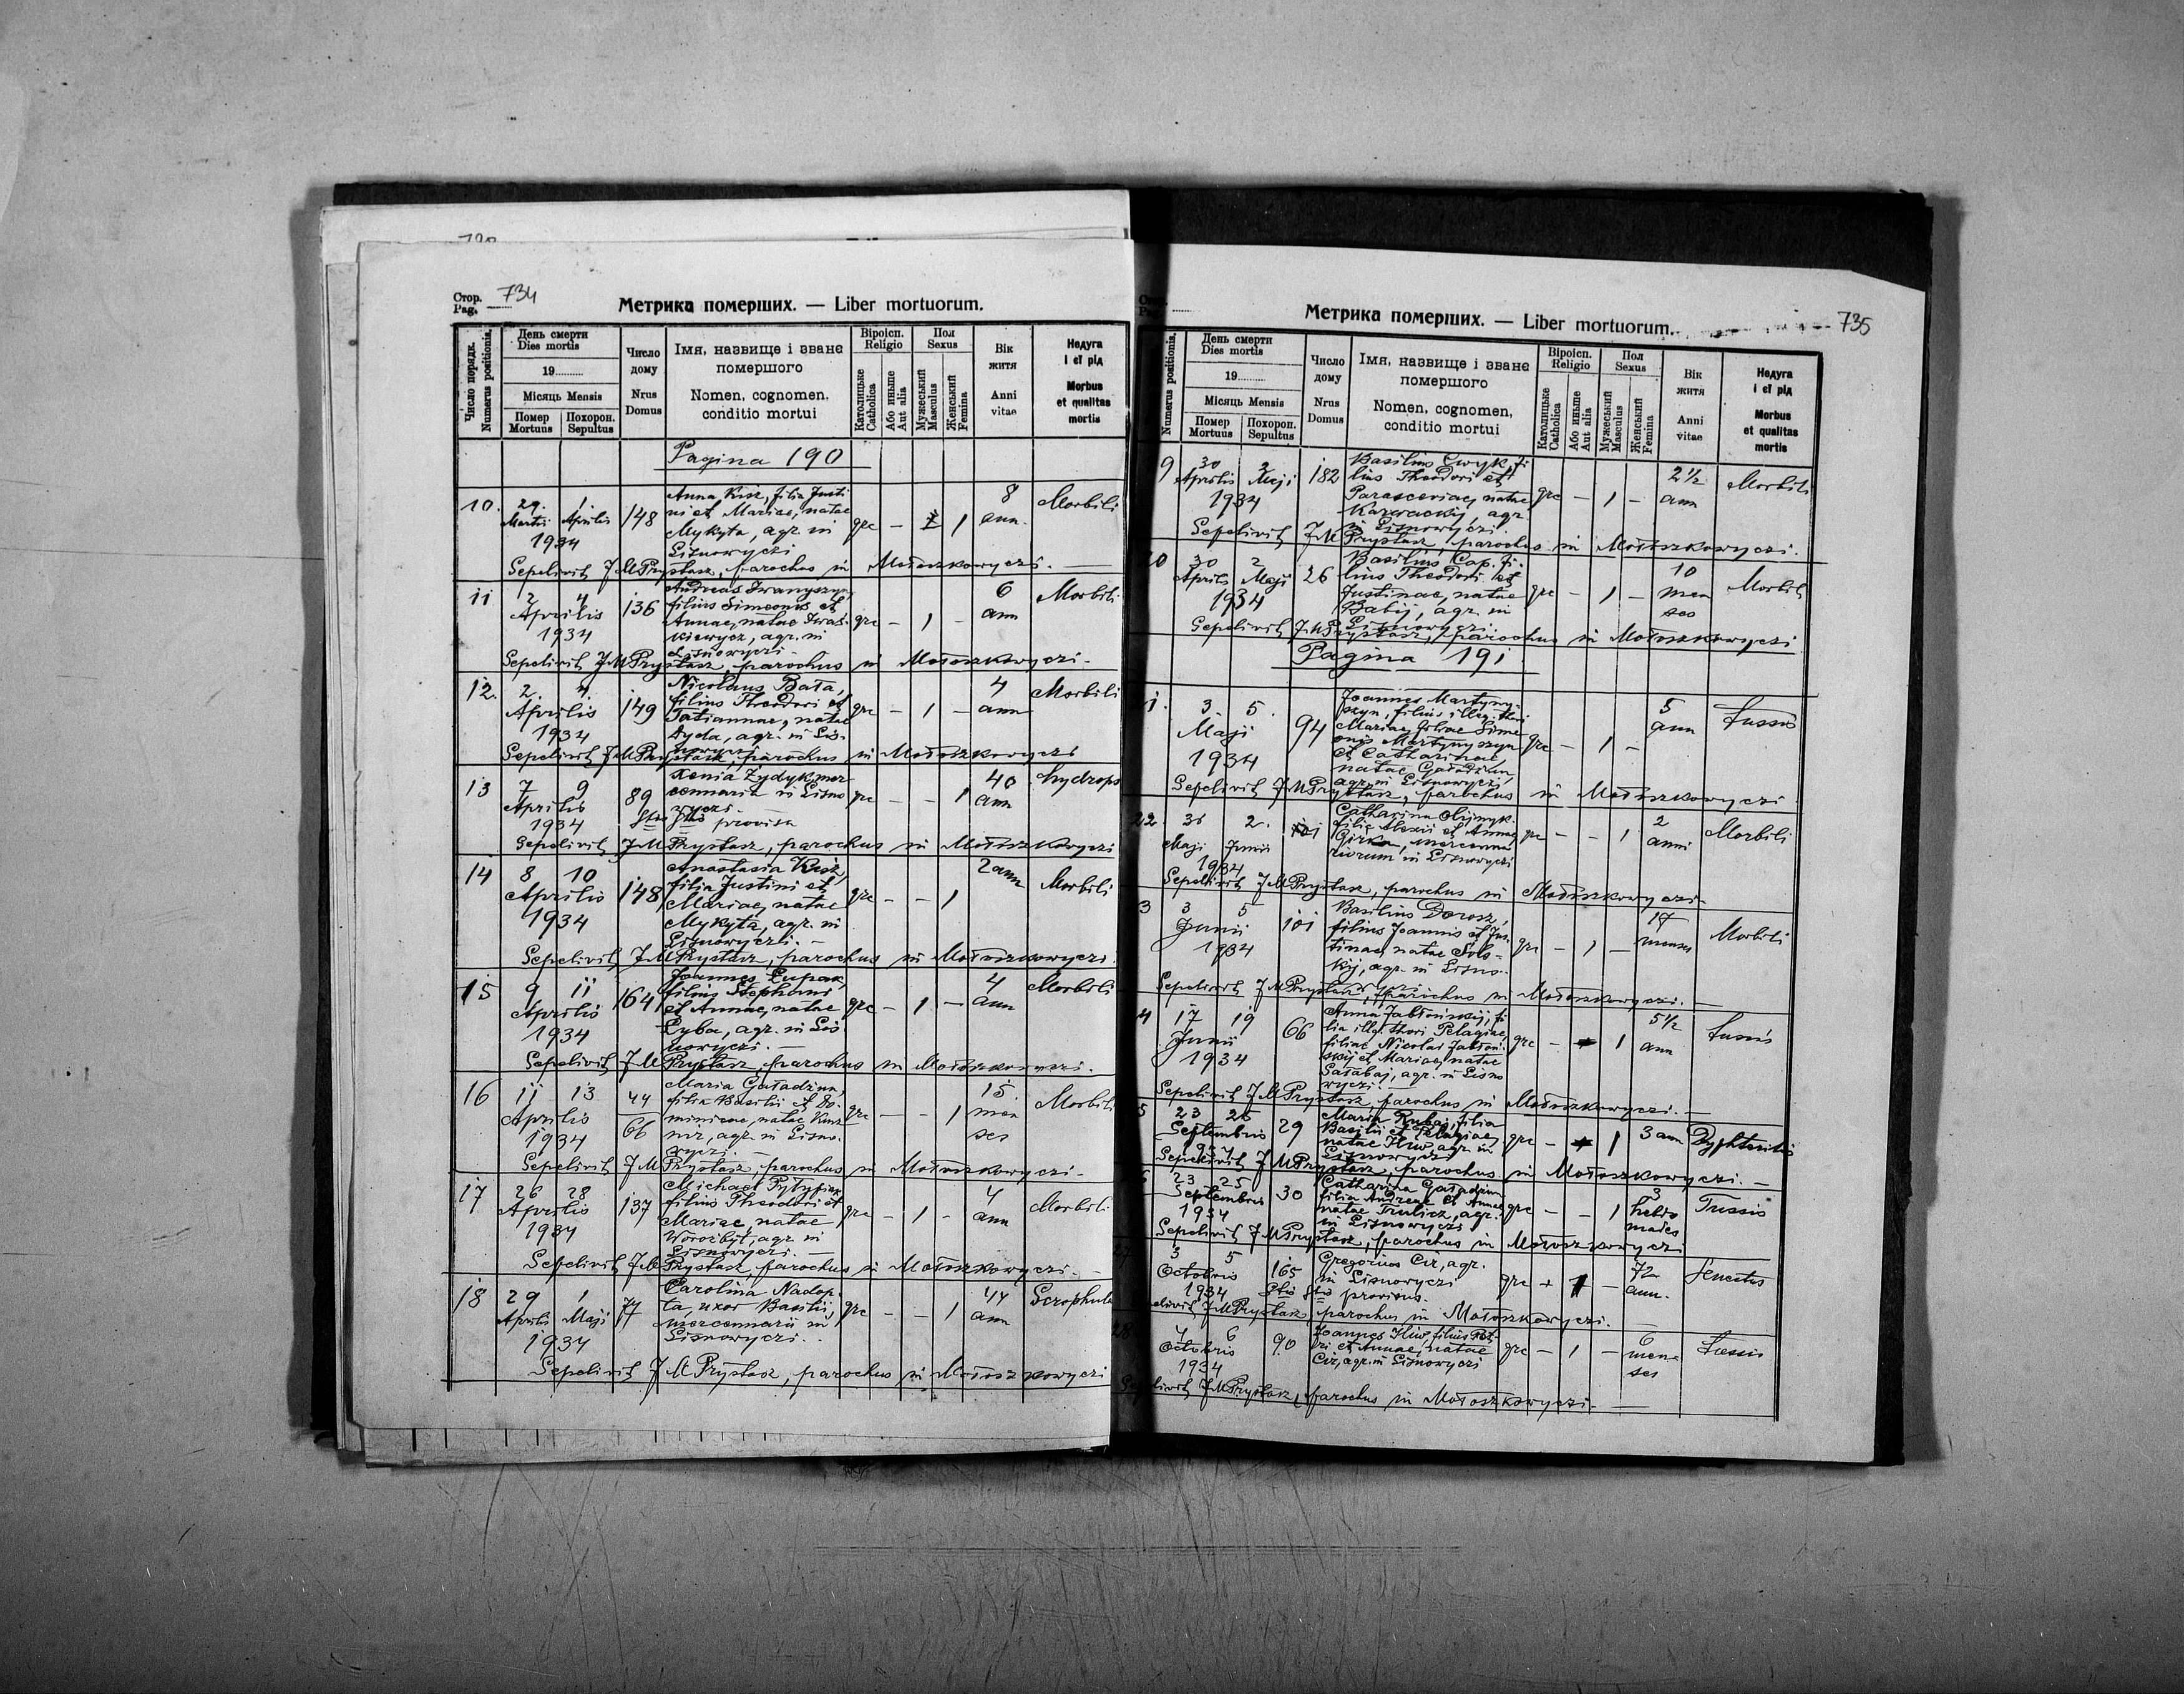 Стор. 734
Pag.
Метрика померших. — Liber mortuorum.
Число порядк.
Numerus positionis.
День смерти
Dies mortis
19
Місяць Mensis
Помер
Mortuus
Похорон.
Sepultus
Число
дому
Nrus
Domus
Імя, назвище і званє
помершого
Nomen, cognomen,
conditio mortui
Віроісп.
Religio
Католицьке
Catholica
Або иньше
Aut alia
Пол
Sexus
Мужеський
Masculus
Женський
Femina
Вік
житя
Anni
vitae
Недуга
і єї рід
Morbus
et qualitas
mortis
Pagina 190
10. 29. Martii 1 Aprilis 1934 148
Anna Kisz, filia Justi
ni et Mariae, natae
Mykyta, agr. in
Lisnowyczi
grc – 1 8 ann. Morbili
Sepelivit JMPrystasz, parochus in Mołoszkowyczi. —
11 2 4 Aprilis 1934 136
Andreas Iwanyszyn,
filius Simeonis et
Annae, natae Iwas
kiewycz, agr. in
Lisnowyczi –
grc – 1 – 6 ann Morbili
Sepelivit JMPrystasz, parochus in Mołoszkowyczi –
12. 2. 4. Aprilis 1934 149
Nicolaus Bała,
filius Theodori et
Tatiannae, natae
Łyda, agr. in Lis-
nowyczi
grc – 1 – 4 ann Morbili
Sepelivit JMPrystasz, parochus in Mołoszkowyczi
13 7 9 Aprilis 1934 89
Xenia Żydyk, mer-
cennaria in Lisno
wyczi. –
Stis Stis provisa
grc – – 1 40 ann hydrops
Sepelivit JMPrystasz, parochus in Mołoszkowyczi
14 8 10 Aprilis 1934 148
Anastasia Kisz,
filia Justini et
Mariae, natae
Mykyta, agr. in
Lisnowyczi. –
grc – – 1 2 ann Morbili
Sepelivit JMPrystasz, parochus in Mołoszkowyczi
15 9 11 Aprilis 1934 164
Joannes Łupak,
filius Stephani
et Annae, natae
Łyba, agr. in Lis
nowyczi. –
grc – 1 – 4 ann Morbili
Sepelivit JMPrystasz, parochus in Mołoszkowyczi.
16 11 13 Aprilis 1934 44 66
Maria Gaładżun,
filia Basilii et Do-
minicae, natae
agr. in Lisno-
wyczi. –
grc – – 1 15. men ses Morbili
Sepelivit JMPrystasz, parochus in Mołoszkowyczi –
17 26 28 Aprilis 1934 137
Michael
filius Theodori et
Mariae, natae
Worożbyt, agr. in
Lisnowyczi. –
grc – 1 – 4 ann Morbili
Sepelivit JMPrystasz, parochus in Mołoszkowyczi. –
18 29 Aprilis 1 Maji 1934 77
Carolina Nadop-
ta, uxor Basilii,
mercennarii in
Lisnowyczi. –
grc – – 1 44 ann Scrophula
Sepelivit JMPrystasz, parochus in Mołoszkowyczi
Метрика померших. — Liber mortuorum. 735
Numerus positionis.
День смерти
Dies mortis
19
Місяць Mensis
Помер
Mortuus
Похорон.
Sepultus
Число
дому
Nrus
Domus
Імя, назвище і званє
помершого
Nomen, cognomen,
conditio mortui
Віроісп.
Religio
Католицьке
Catholica
Або иньше
Aut alia
Пол
Sexus
Мужеський
Masculus
Женський
Femina
Вік
житя
Anni
vitae
Недуга
і єї рід
Morbus
et qualitas
mortis
9 30 Aprilis 2 Maji 1934 182
Basilius Cwyk, fi
lius Theodori et
Parasceviae, natae
Karwackij, agr.
in Lisnowyczi
grc – 1 – 2½ ann Morbili
Sepelivit JMPrystasz, parochus in Mołoszkowyczi.
20 30 Aprilis 2 Maji 1934 26
Basilius Cap, fi-
lius Theodori et
Justinae, natae
Babij, agr. in
Lisnowyczi.
grc – 1 – 10 men ses Morbili
Sepelivit JMPrystasz, parochus in Mołoszkowyczi
Pagina 191
1. 3. 5. Maji 1934 94
Joannes Martyny-
szyn, filius illeg. thori
Mariae, filiae Sime
onis Martynyszyn
et Catharinae,
natae Gaładżun,
agr. in Lisnowyczi
grc – 1 – 5 ann Tussis
Sepelivit JMPrystasz, parochus in Mołoszkowyczi
22. 31 Maji 2. Junii 1934 101
Catharina Olijnyk,
filia Alexii et Annae
Girka, mercenna
riorum in Lisnowyczi
grc – – 1 2 anni Morbili
Sepelivit JMPrystasz, parochus in Mołoszkowyczi –
3 3 5 Junii 1934 101
Basilius Dorosz,
filius Joannis et Jus-
tinae, natae Sols-
kij, agr. in Lisno-
wyczi
grc – 1 – 17 menses Morbili
Sepelivit JMPrystasz, parochus in Mołoszkowyczi. —
4 17 19 Junii 1934 66
Anna Jabłońskij, fi
lia illeg. thori Pelagiae,
filiae Nicolai Jabłoń-
skij et Mariae, natae
Sałabaj, agr. in Lisno
wyczi. –
grc – 1 5½ ann Tussis
Sepelivit JMPrystasz, parochus in Mołoszkowyczi. —
5 23 25 Septembris 1934 29
Maria Rybaj, filia
Basilii et Pelagiae,
natae Iliw, agr. in
Lisnowyczi
grc – 1 3 ann Dyphteritis
Sepelivit JMPrystasz, parochus in Mołoszkowyczi. —
6 23 25 Septembris 1934 30
Catharina Gaładżun
filia Andreae et Annae
natae Trulicz, agr.
in Lisnowyczi
grc – – 1 3 hebdo mades Tussis
Sepelivit JMPrystasz, parochus in Mołoszkowyczi
27 3 5 Octobris 1934 165
Gregorius Cir, agr.
in Lisnowyczi
Stis Stis provisus.
grc + 1 – 72 ann. Senectus
Sepelivit JMPrystasz, parochus in Mołoszkowyczi. —
28 4 6 Octobris 1934 90
Joannes Iliw, filius Pet-
ri et Annae, natae
Cir, agr. in Lisnowyczi
grc – 1 – 6 mense ses Tussis
Sepelivit JMPrystasz, parochus in Mołoszkowyczi. —